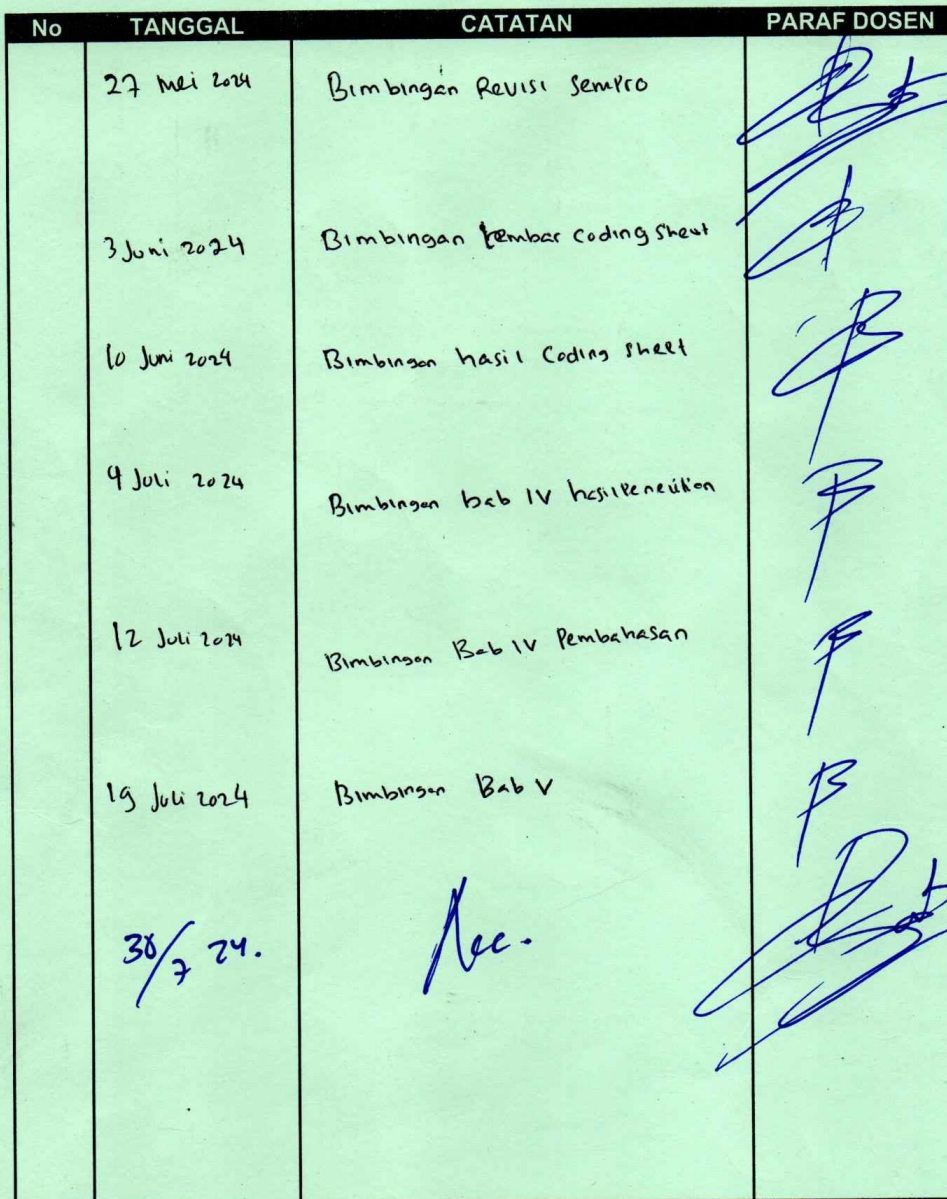 No TANGGAL CATATAN PARAF DOSEN
27 Mei 2024 Bimbingan Revisi Sempro
3 Juni 2024 Bimbingan lembar coding sheet
10 Juni 2024 Bimbingan hasil Coding sheet
9 Juli 2024 Bimbingan bab IV hasil Penelitian
12 Juli 2024 Bimbingan Bab IV Pembahasan
19 Juli 2024 Bimbingan Bab V
30/7 24. Acc.